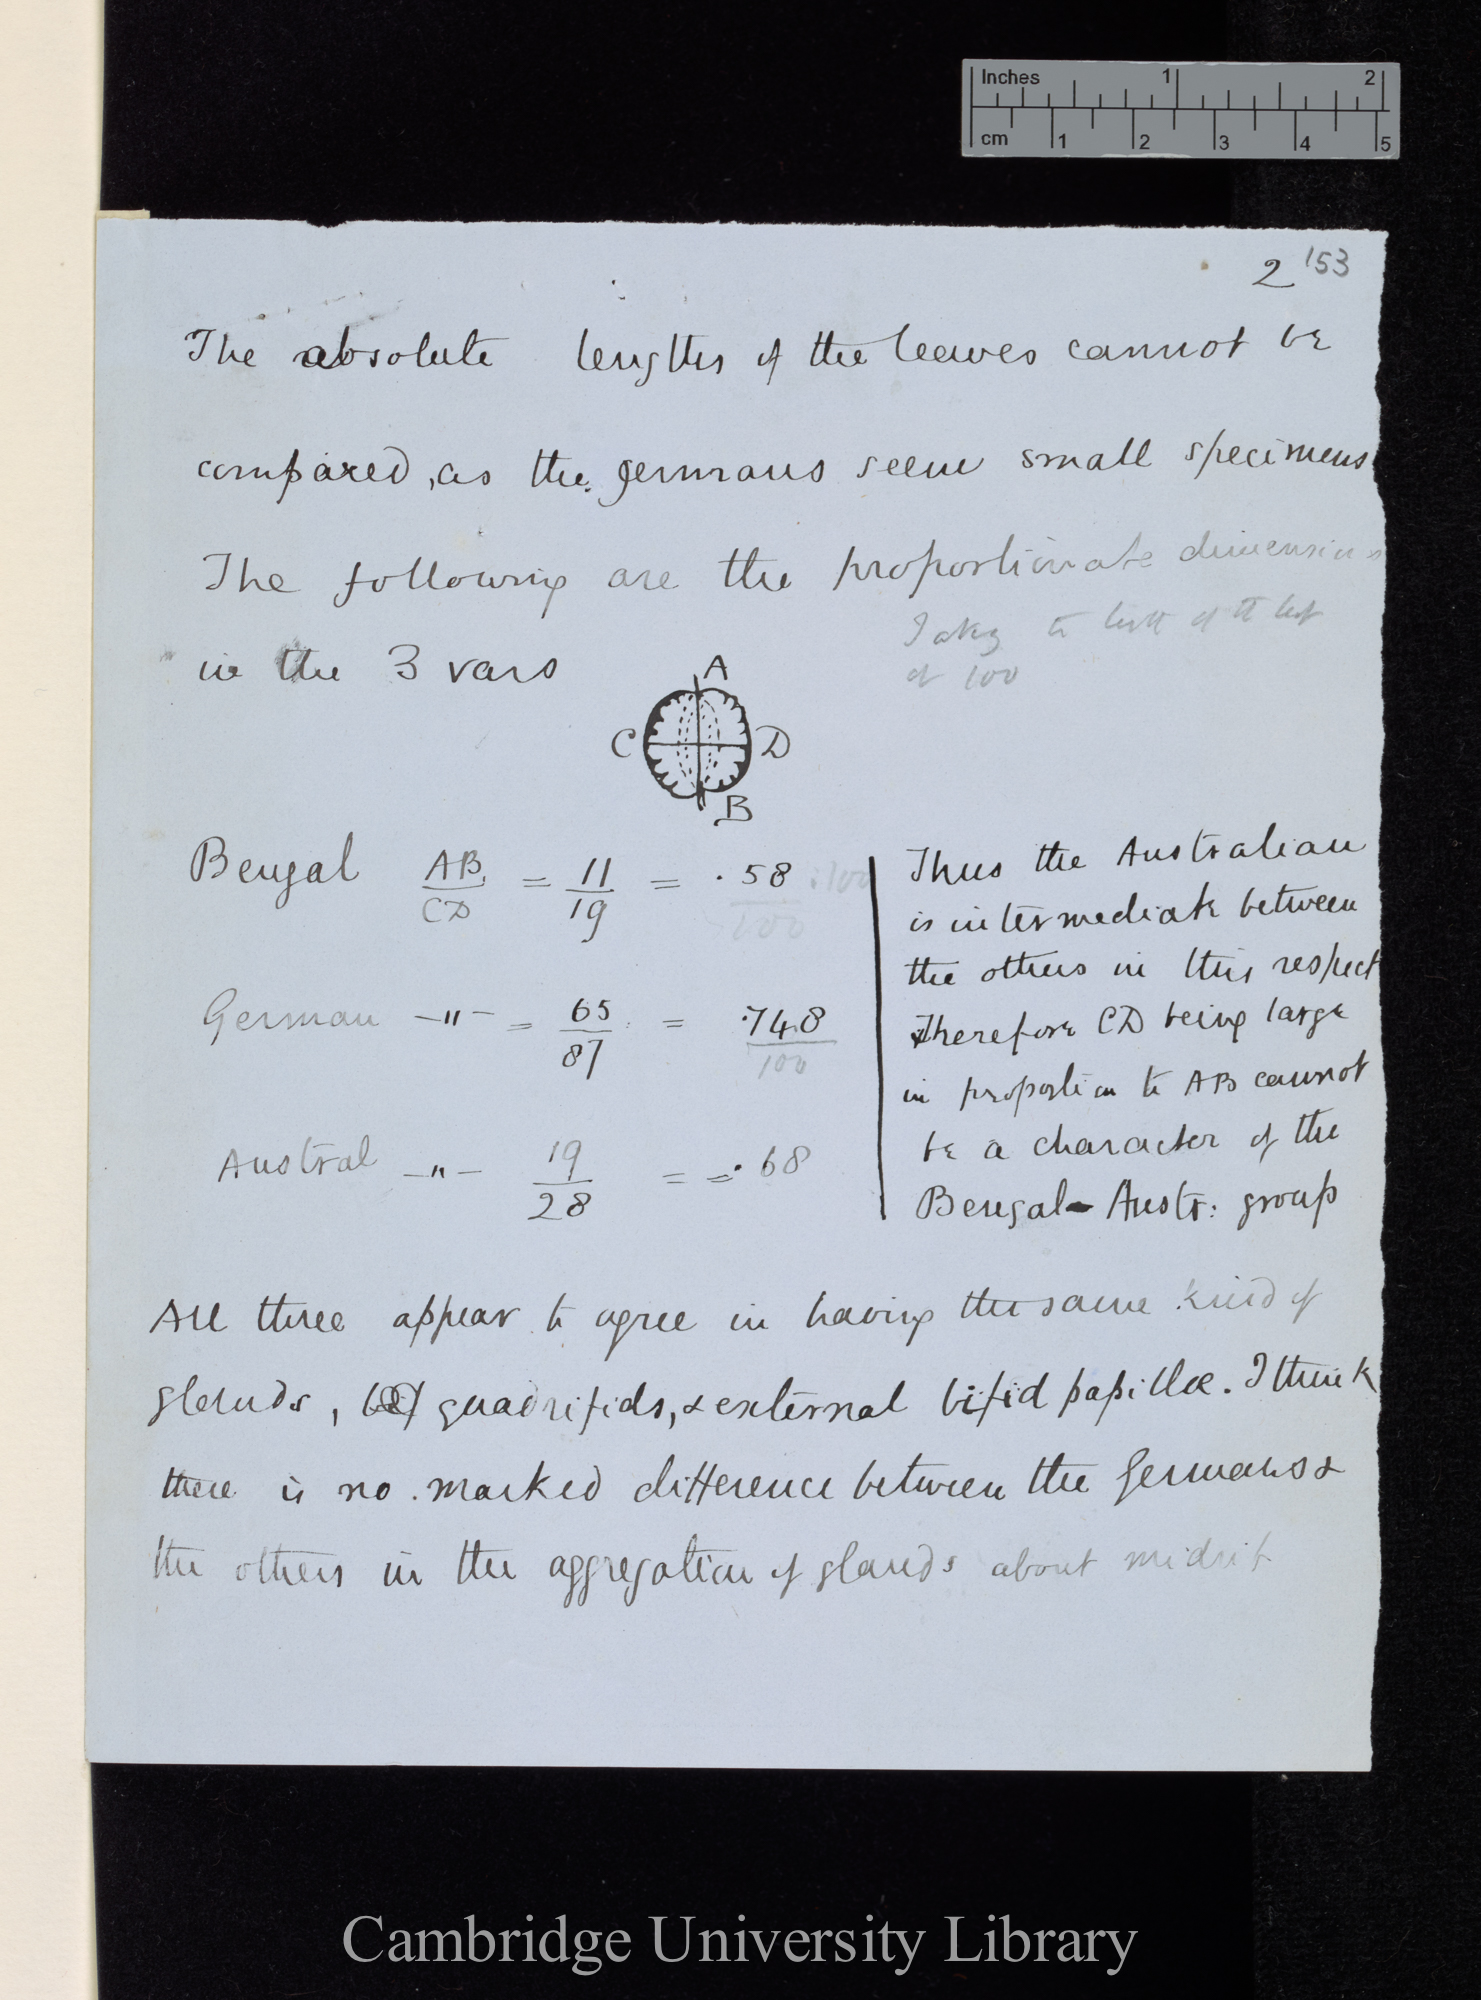 Inches 1 2
cm 1 2 3 4 5
2 153
The absolute lengths of the leaves cannot be
compared, as the germans seem small specimens
The following are the proportionate dimensions
Taking the of the leaf
at 100
in the 3 vars
A
C D
B
Bengal AB/CD = 11/19 = .58 :100
100
German —"— = 65/87 = .748/100
Austral —"— 19/28 = = .68
Thus the Australian
is intermediate between
the others in this respect
Therefore CD being large
in proportion to AB cannot
be a character of the
Bengal-Austr: group
All three appear to agree in having the same kind of
glands, quadrifids, & external bifid papillæ. I think
there is no marked difference between the Germans &
the others in the aggregation of glands about midrib
Cambridge University Library